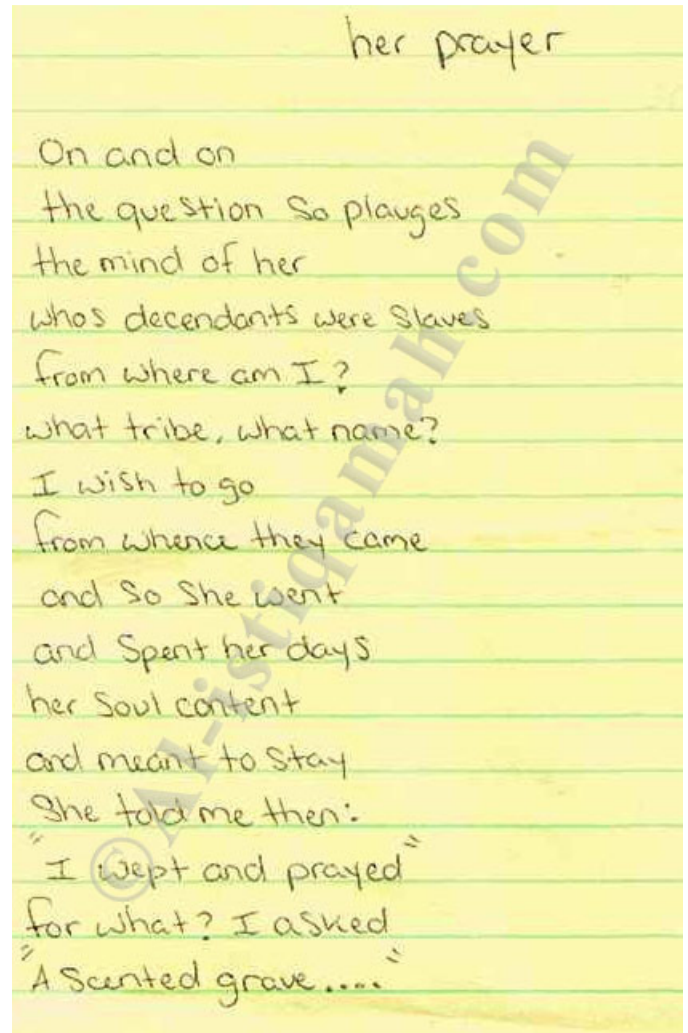 her prayer
On and on
the question so plauges
the mind of her
whos decendants were slaves
from where am I?
what tribe, what name?
I wish to go
from whence they came
and so she went
and spent her days
her soul content
and meant to stay
She told me then:
"I wept and prayed"
for what? I asked
"A scented grave....."
©Al-istiqamah.com